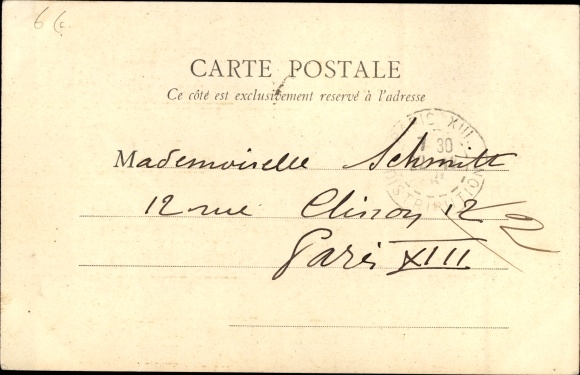 6c.
CARTE POSTALE
Ce côté est exclusivement reservé à l'adresse
PARIS XIII
7 30
DISTRIBUTION
Mademoiselle Schmitt
12 rue Clisson 12
Paris XIII